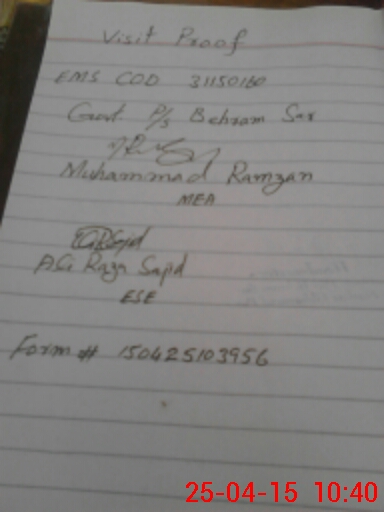 Visit Proof
EMS COD 31150160
Govt. P/s Behram Sar
Muhammad Ramzan
MEA
Ali Raza Sajid
ESE
Form # 150425103956
25-04-15 10:40